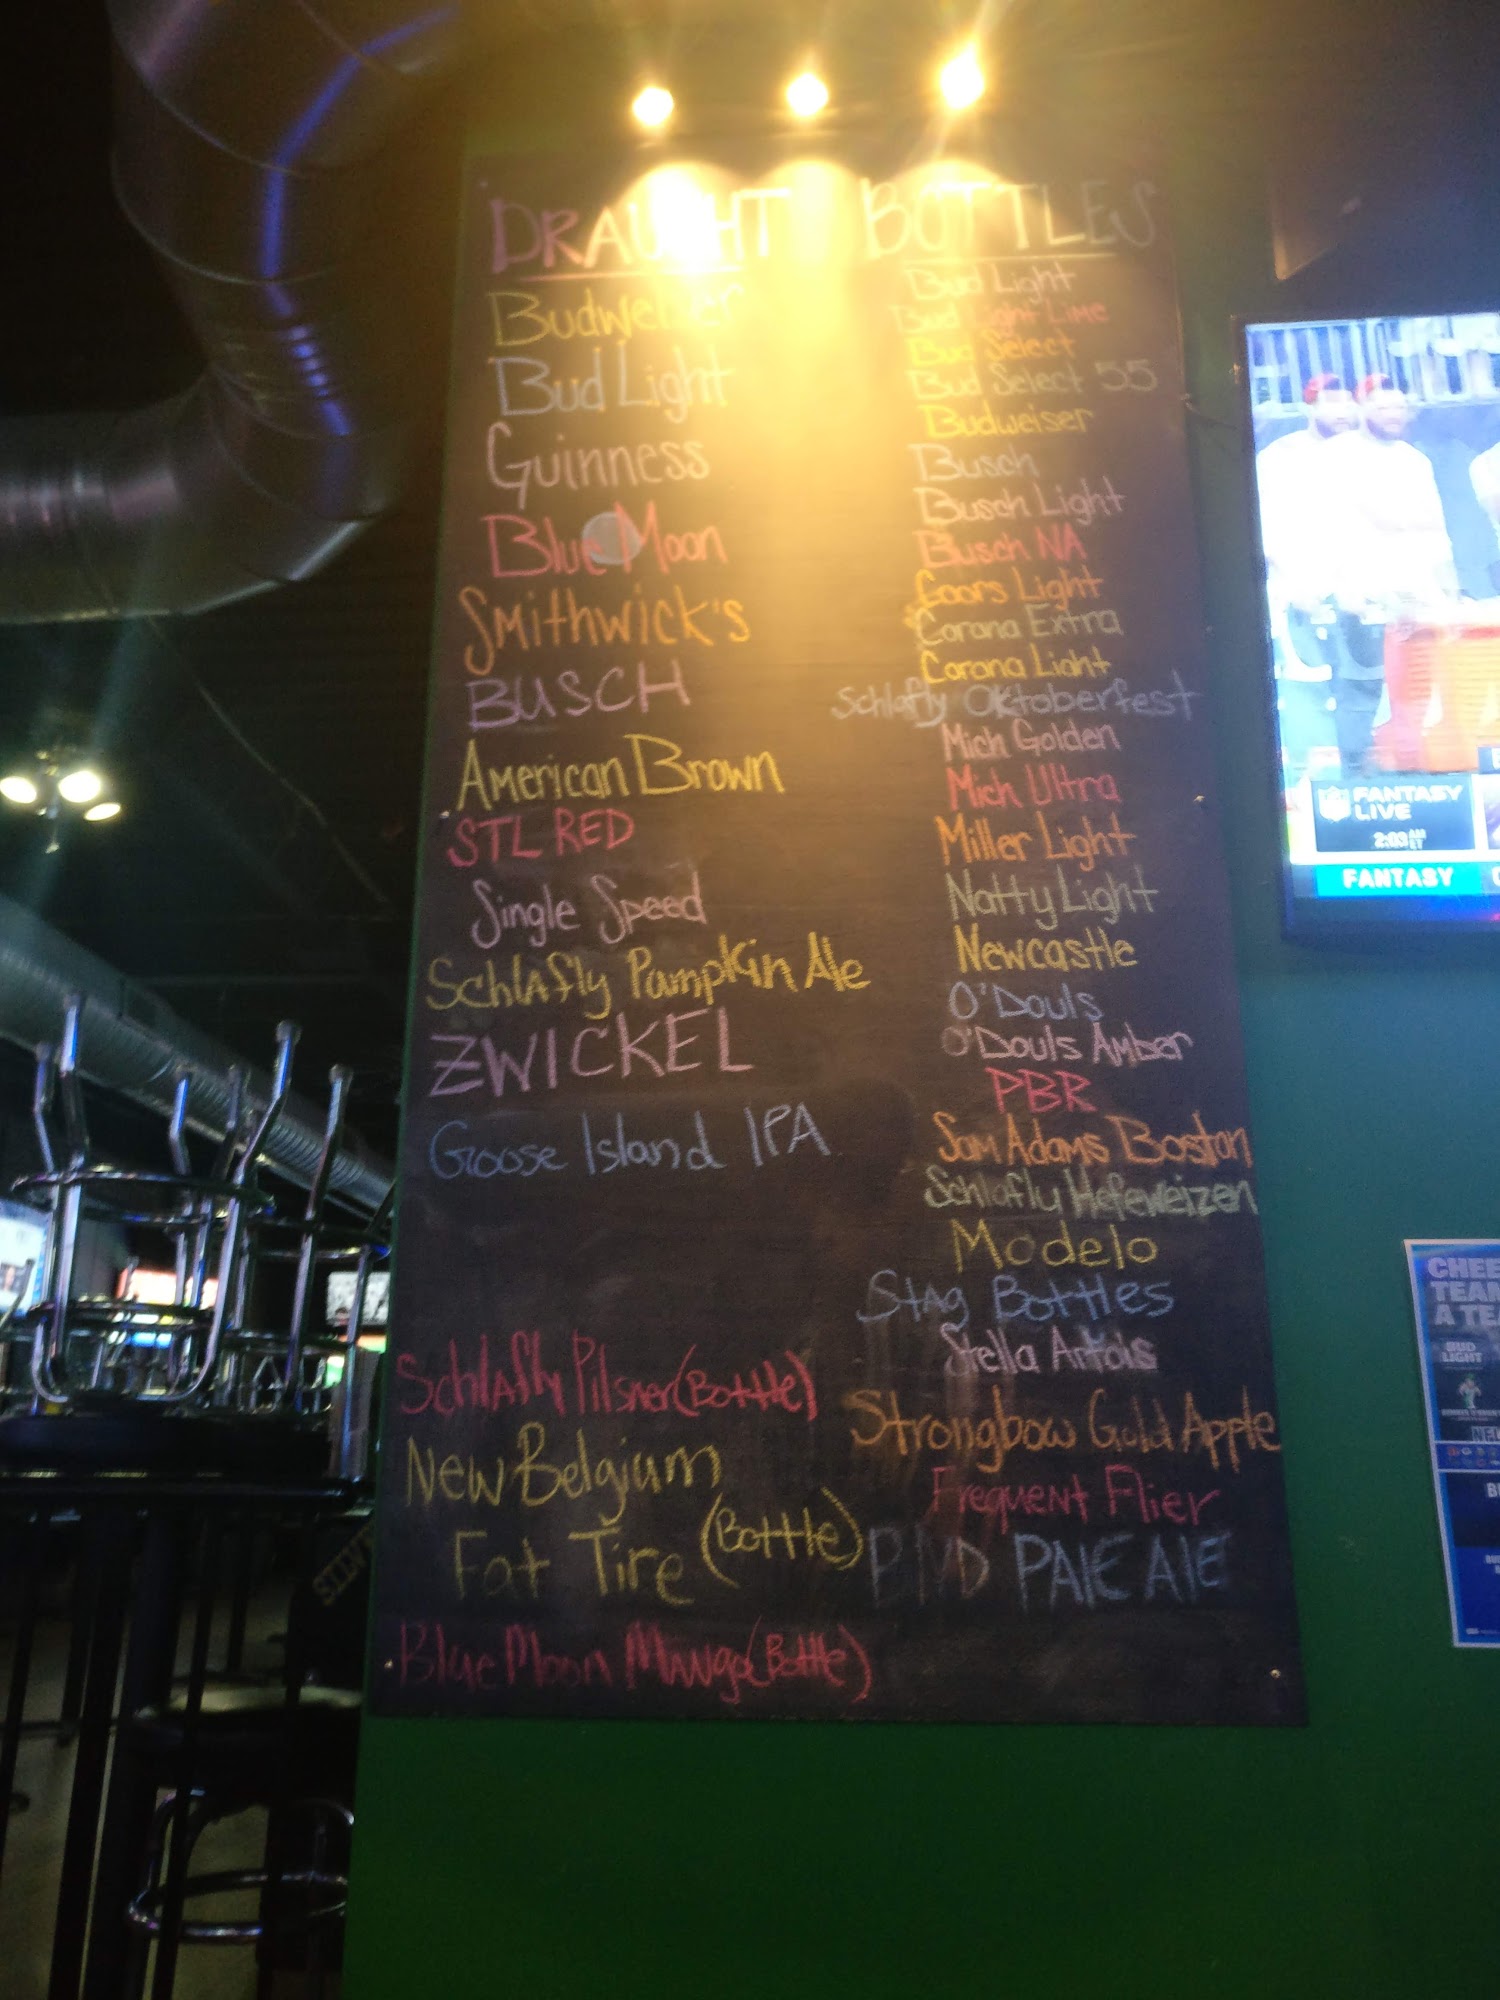 DRAUGHT
Budweiser
Bud Light
Guinness
Blue Moon
Smithwick's
BUSCH
American Brown
STL RED
Single Speed
Schlafly Pumpkin Ale
ZWICKEL
Goose Island IPA
Schlafly Pilsner (Bottle)
New Belgium
Fat Tire (Bottle)
Blue Moon Mango (Bottle)
BOTTLES
Bud Light
Bud Light Lime
Bud Select
Bud Select 55
Budweiser
Busch
Busch Light
Busch NA
Coors Light
Corona Extra
Corona Light
Schlafly Oktoberfest
Mich Golden
Mich Ultra
Miller Light
Natty Light
Newcastle
O'Douls
O'Douls Amber
PBR
Sam Adams Boston
Schlafly Hefeweizen
Modelo
Stag Bottles
Stella Artois
Strongbow Gold Apple
Frequent Flier
PALE ALE
FANTASY
LIVE
2:03 AM ET
FANTASY
CHEE
TEAM
A TEA
BUD
LIGHT
NFL